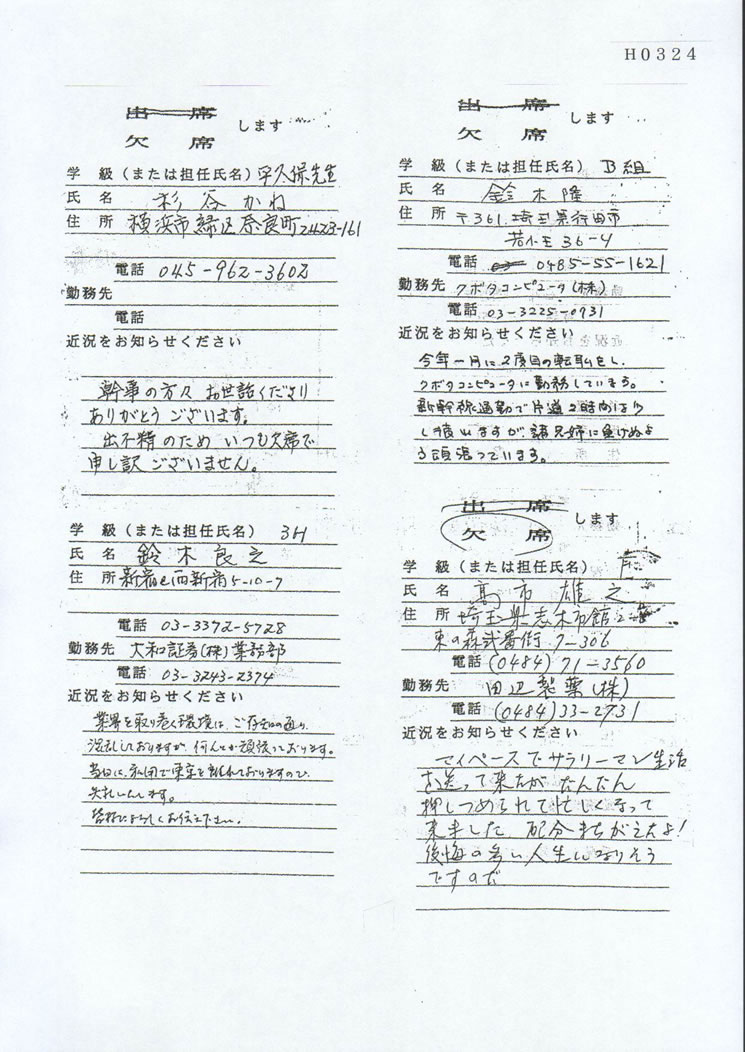 H0324
出 席
欠 席
します
学 級(または担任氏名) 早久保先生
氏 名 杉谷かね
住 所 横浜市緑区奈良町2423-161
電話 045-962-3602
勤務先
電話
近況をお知らせください
幹事の方々 お世話くださり
ありがとう ございます。
出不精のため いつも欠席で
申し訳ございません。
学 級(または担任氏名) 3H
氏 名 鈴木良之
住 所 新宿区西新宿5-10-7
電話 03-3372-5728
勤務先 大和証券(株)業務部
電話 03-3243-2374
近況をお知らせください
業界を取り巻く環境は、ご存知の通り
混乱しておりますが、何んとか頑張っております。
当日は、私用で東京を離れておりますので、
失礼いたします。
皆様によろしくお伝え下さい。
出 席
欠 席
します
学 級(または担任氏名) B組
氏 名 鈴木隆
住 所 〒361 埼玉県行田市
若小玉36-4
電話 0485-55-1621
勤務先 クボタコンピュータ(株)
電話 03-3225-0931
近況をお知らせください
今年一月に2度目の転職をし、
クボタコンピュータに勤務しています。
新幹線通勤で片道2時間は少
し疲れますが、諸兄姉に負けぬよ
う頑張っています。
出 席
欠 席
します
学 級(または担任氏名)
氏 名 高市雄之
住 所 埼玉県志木市館2
東の森弐番街 7-306
電話 (0484)71-3560
勤務先 田辺製薬(株)
電話 (0484)33-2731
近況をお知らせください
マイペースでサラリーマン生活
を送って来たが だんだん
押しつめられて忙しくなって
来ました 配分まちがえたよ!
後悔の多い人生になりそう
ですのだ